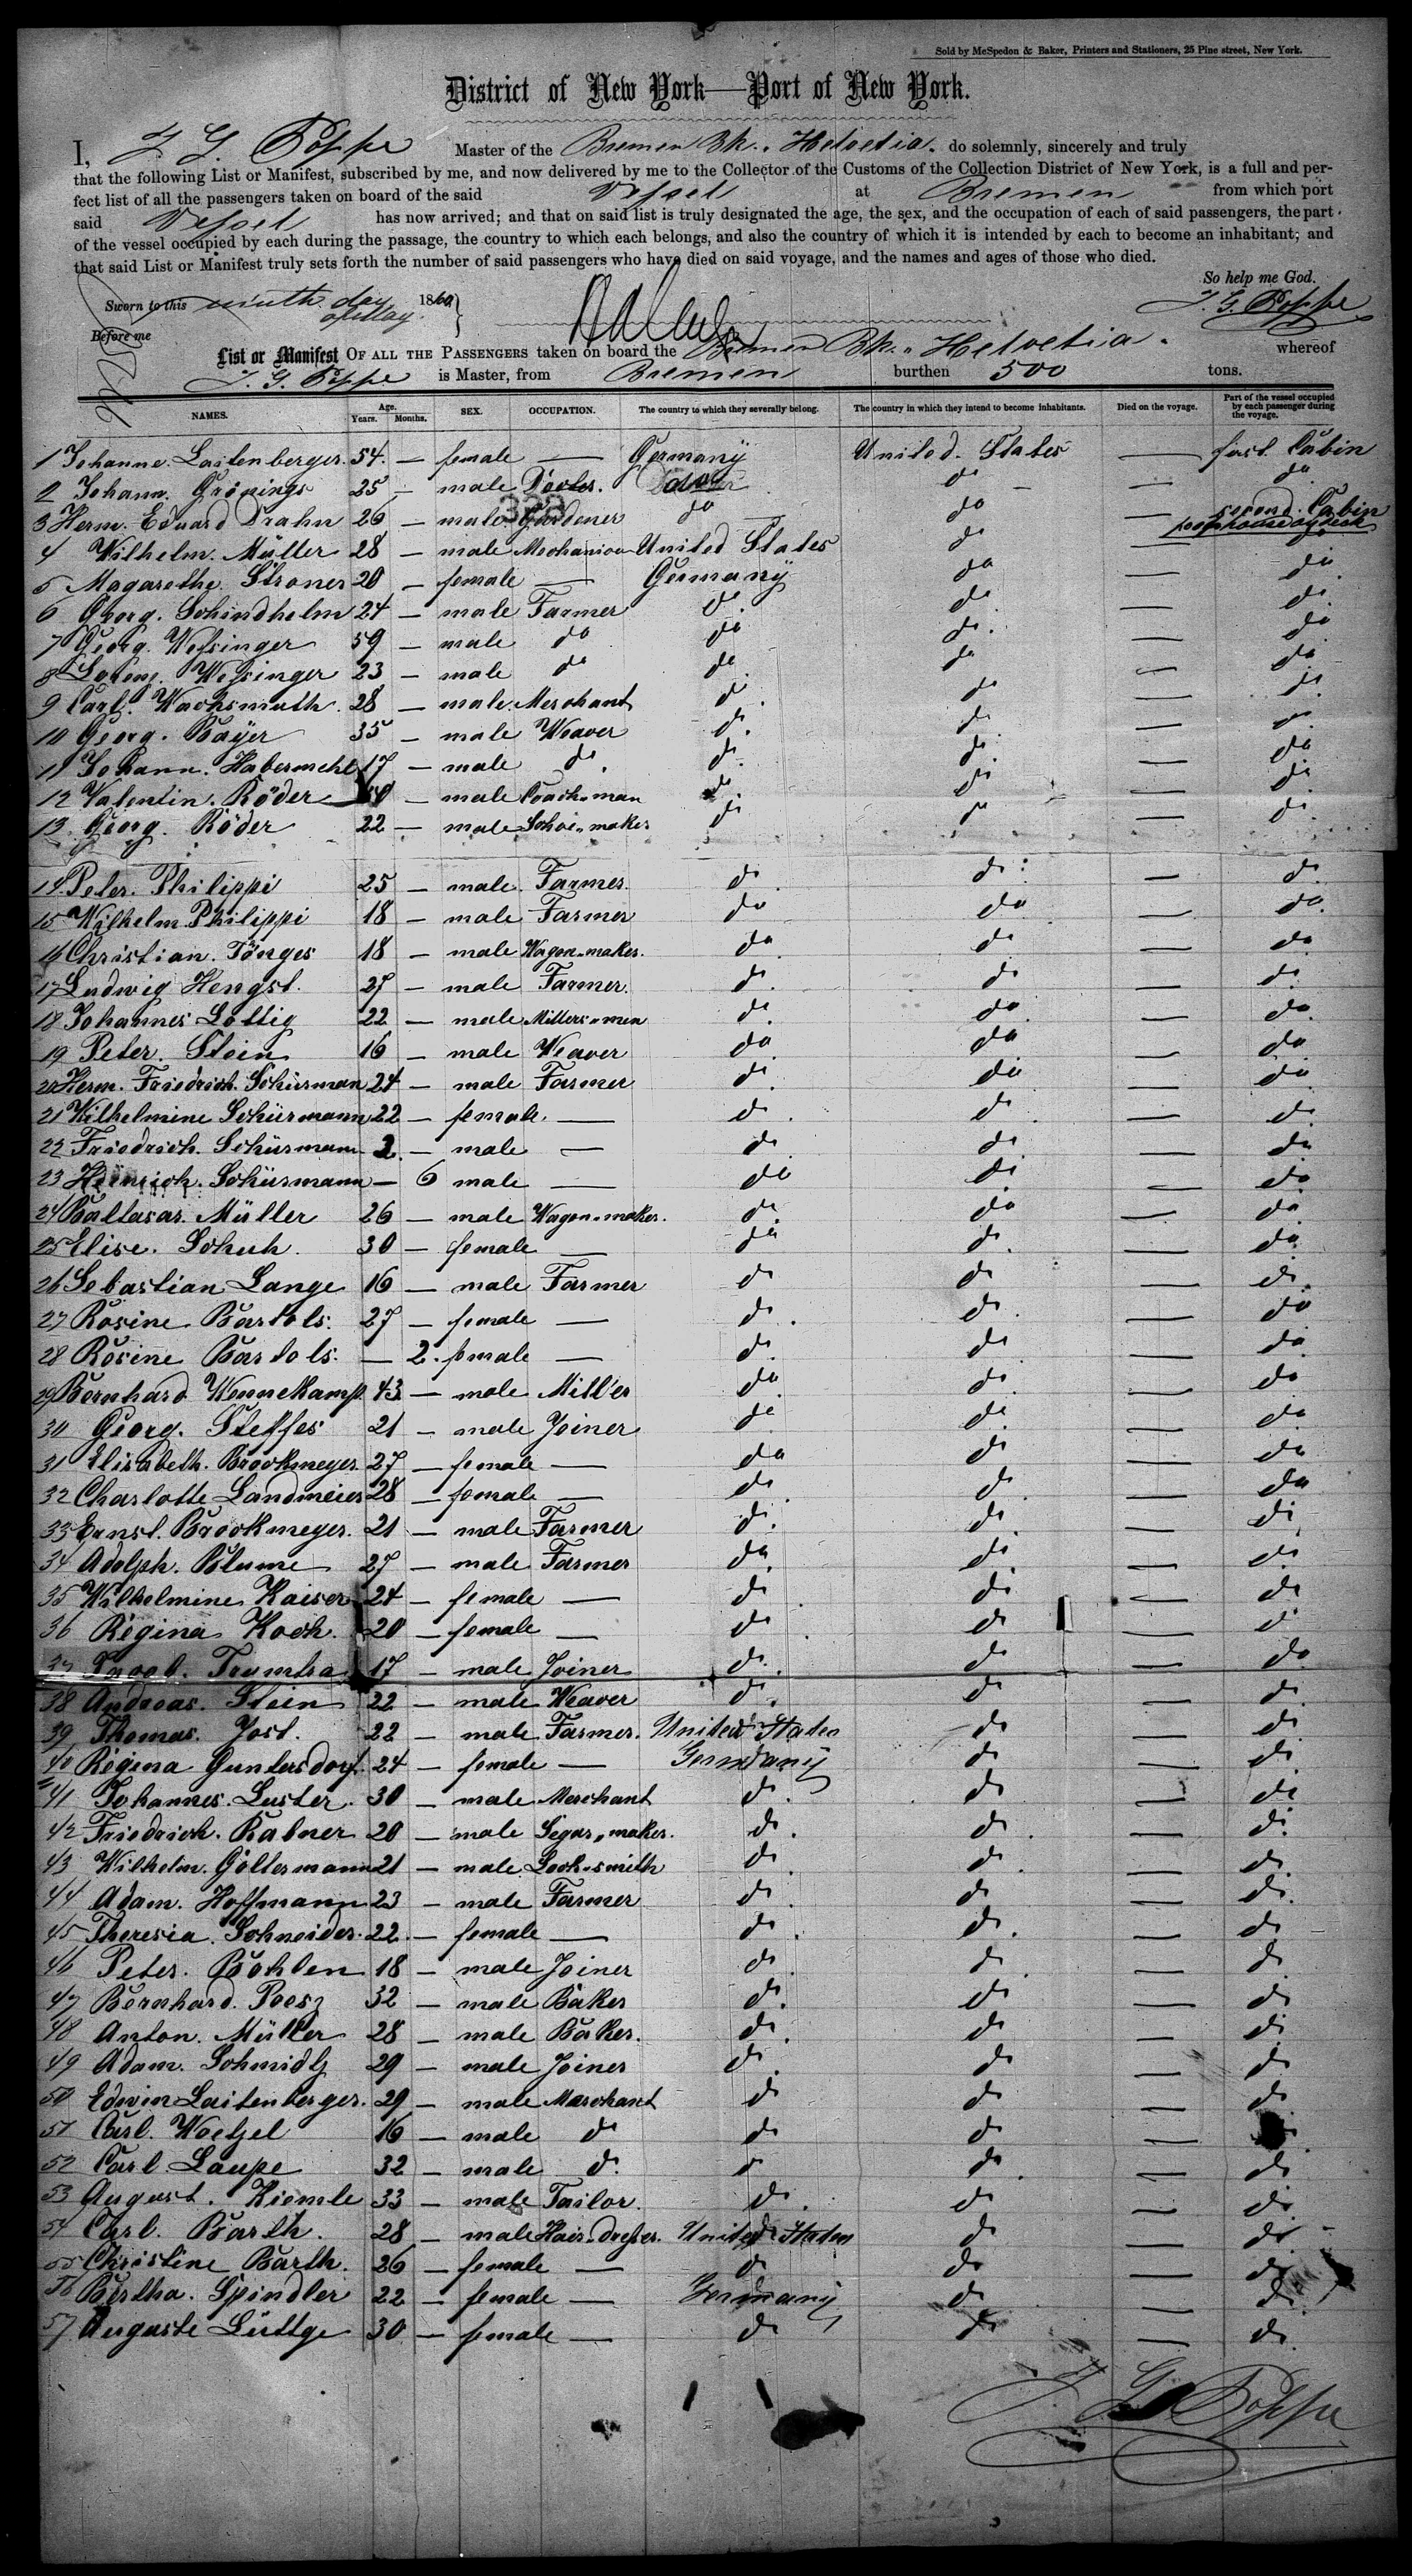 Sold by McSpedon & Baker, Printers and Stationers, 25 Pine street, New York.
District of New York—Port of New York.
I, J. G. Poppe Master of the Bremen Bk. Helvetia. do solemnly, sincerely and truly
that the following List or Manifest, subscribed by me, and now delivered by me to the Collector of the Customs of the Collection District of New York, is a full and per-
fect list of all the passengers taken on board of the said Vessel at Bremen from which port
said Vessel has now arrived; and that on said list is truly designated the age, the sex, and the occupation of each of said passengers, the part
of the vessel occupied by each during the passage, the country to which each belongs, and also the country of which it is intended by each to become an inhabitant; and
that said List or Manifest truly sets forth the number of said passengers who have died on said voyage, and the names and ages of those who died.
So help me God.
Sworn to this ninth day of May 1860 J. G. Poppe
Before me
List or Manifest OF ALL THE PASSENGERS taken on board the Bremen Bk. Helvetia. whereof
J. G. Poppe is Master, from Bremen burthen 500 tons.
NAMES. Age. Years. Months. SEX. OCCUPATION. The country to which they severally belong. The country in which they intend to become inhabitants. Died on the voyage. Part of the vessel occupied by each passenger during the voyage.
1 Johanne. Laitenberger. 54. — female — Germany United. States — first. Cabin
2 Johann. Grönings 25 — male Doctor. do do — do
3 Herm. Eduard Drahn 26 — male Gardener do do — second. Cabin
4 Wilhelm. Müller 28 — male Mechanicus United States do — do
5 Magarethe. Stroner 20 — female — Germany do — do
6 Georg. Schindhelm 24 — male Farmer do. do. — do.
7 Georg. Wessinger 59 — male do do do. — do
8 Lorenz. Wessinger 23 — male do do. do — do
9 Carl. Wachsmuth. 28 — male. Merchant do. do — do.
10 Georg. Bayer 35 — male Weaver do. do. — do
11 Johann. Habermehl 17 — male do. do. do. — do
12 Valentin. Röder — male Coach=man do. do — do
13. Georg. Röder 22 — male Schoe=maker do do — do.
14. Peter. Philippi 25 — male. Farmer. do. do. — do.
15 Wilhelm. Philippi 18 — male Farmer do do — do.
16 Christian. Tönges 18 — male Wagon=maker. do. do — do.
17 Ludwig Hengst. 27 — male Farmer. do. do — do.
18 Johannes Lottig 22 — male Millers=men do. do — do.
19 Peter. Stein 16 — male Weaver do. do — do.
20 Herm. Friedrich. Schürman 24 — male Farmer do. do — do
21 Wilhelmine Schürmann 22 — female. — do. do. — do.
22 Friedrich. Schürmann 2. — male — do. do. — do
23 Heinrich. Schürmann — 6 male — do do — do
24 Baltasar. Müller 26 — male Wagon=maker. do. do — do
25 Elise. Schuh. 30 — female — do do. — do
26 Sebastian Lange 16 — male Farmer do do — do.
27 Rosine Bartels. 27 — female — do. do. — do
28 Rosine Bartels. — 2. female — do. do — do
29 Bernhard Wennekamp. 43 — male Miller do. do. — do
30 Georg. Steffes 21 — male Joiner do do. — do
31 Elisabeth. Brockmeyer. 27 — female — do do — do
32 Charlotte Landmeier 28 — female — do. do. — do
33 Ernst. Brockmeyer. 21 — male Farmer do. do. — do.
34 Adolph. Blume 27 — male Farmer do. do. — do.
35 Wilhelmine Kaiser 24 — female — do. do — do
36 Regina Koch. 20 — female — do. do — do
17 — male Joiner do. do — do
38 Andreas. Stein 22 — male Weaver do. do — do.
39 Thomas. Jost. 22 — male Farmer. United States do — do
40 Regina Guntersdorf. 24 — female — Germany do — do
41 Johannes. Luster. 30 — male Merchant do. do — do
42 Friedrich. Rabner 20 — male Segar=maker. do. do. — do.
43 Wilhelm. Göltermann 21 — male Lock=smith do do. — do.
44 Adam. Hoffmann 23 — male Farmer do. do — do.
45 Theresia. Schneider. 22. — female — do. do. — do
46 Peter. Bohlen 18 — male Joiner do. do. — do
47 Bernhard. Poesz 32 — male Baker do. do — do
48 Anton. Müller 28 — male Baker. do. do — do.
49 Adam. Schmidtz 29 — male Joiner do. do — do
50 Edwin Laitenberger. 29 — male Marchant do do — do
51 Carl. Woetzel 16 — male do do do —
52 Carl. Laupe 32 — male do. do do. — do
53 August. Kiemle 33 — male Tailor. do. do — do.
54 Carl. Barth. 28 — male Hair=dresser. United States do — do
55 Christine Barth. 26 — female — do do — do
56 Bertha. Spindler 22 — female — Germany do — do.
57 Auguste Lüttge 30 — female — do do — do.
J. G. Poppe